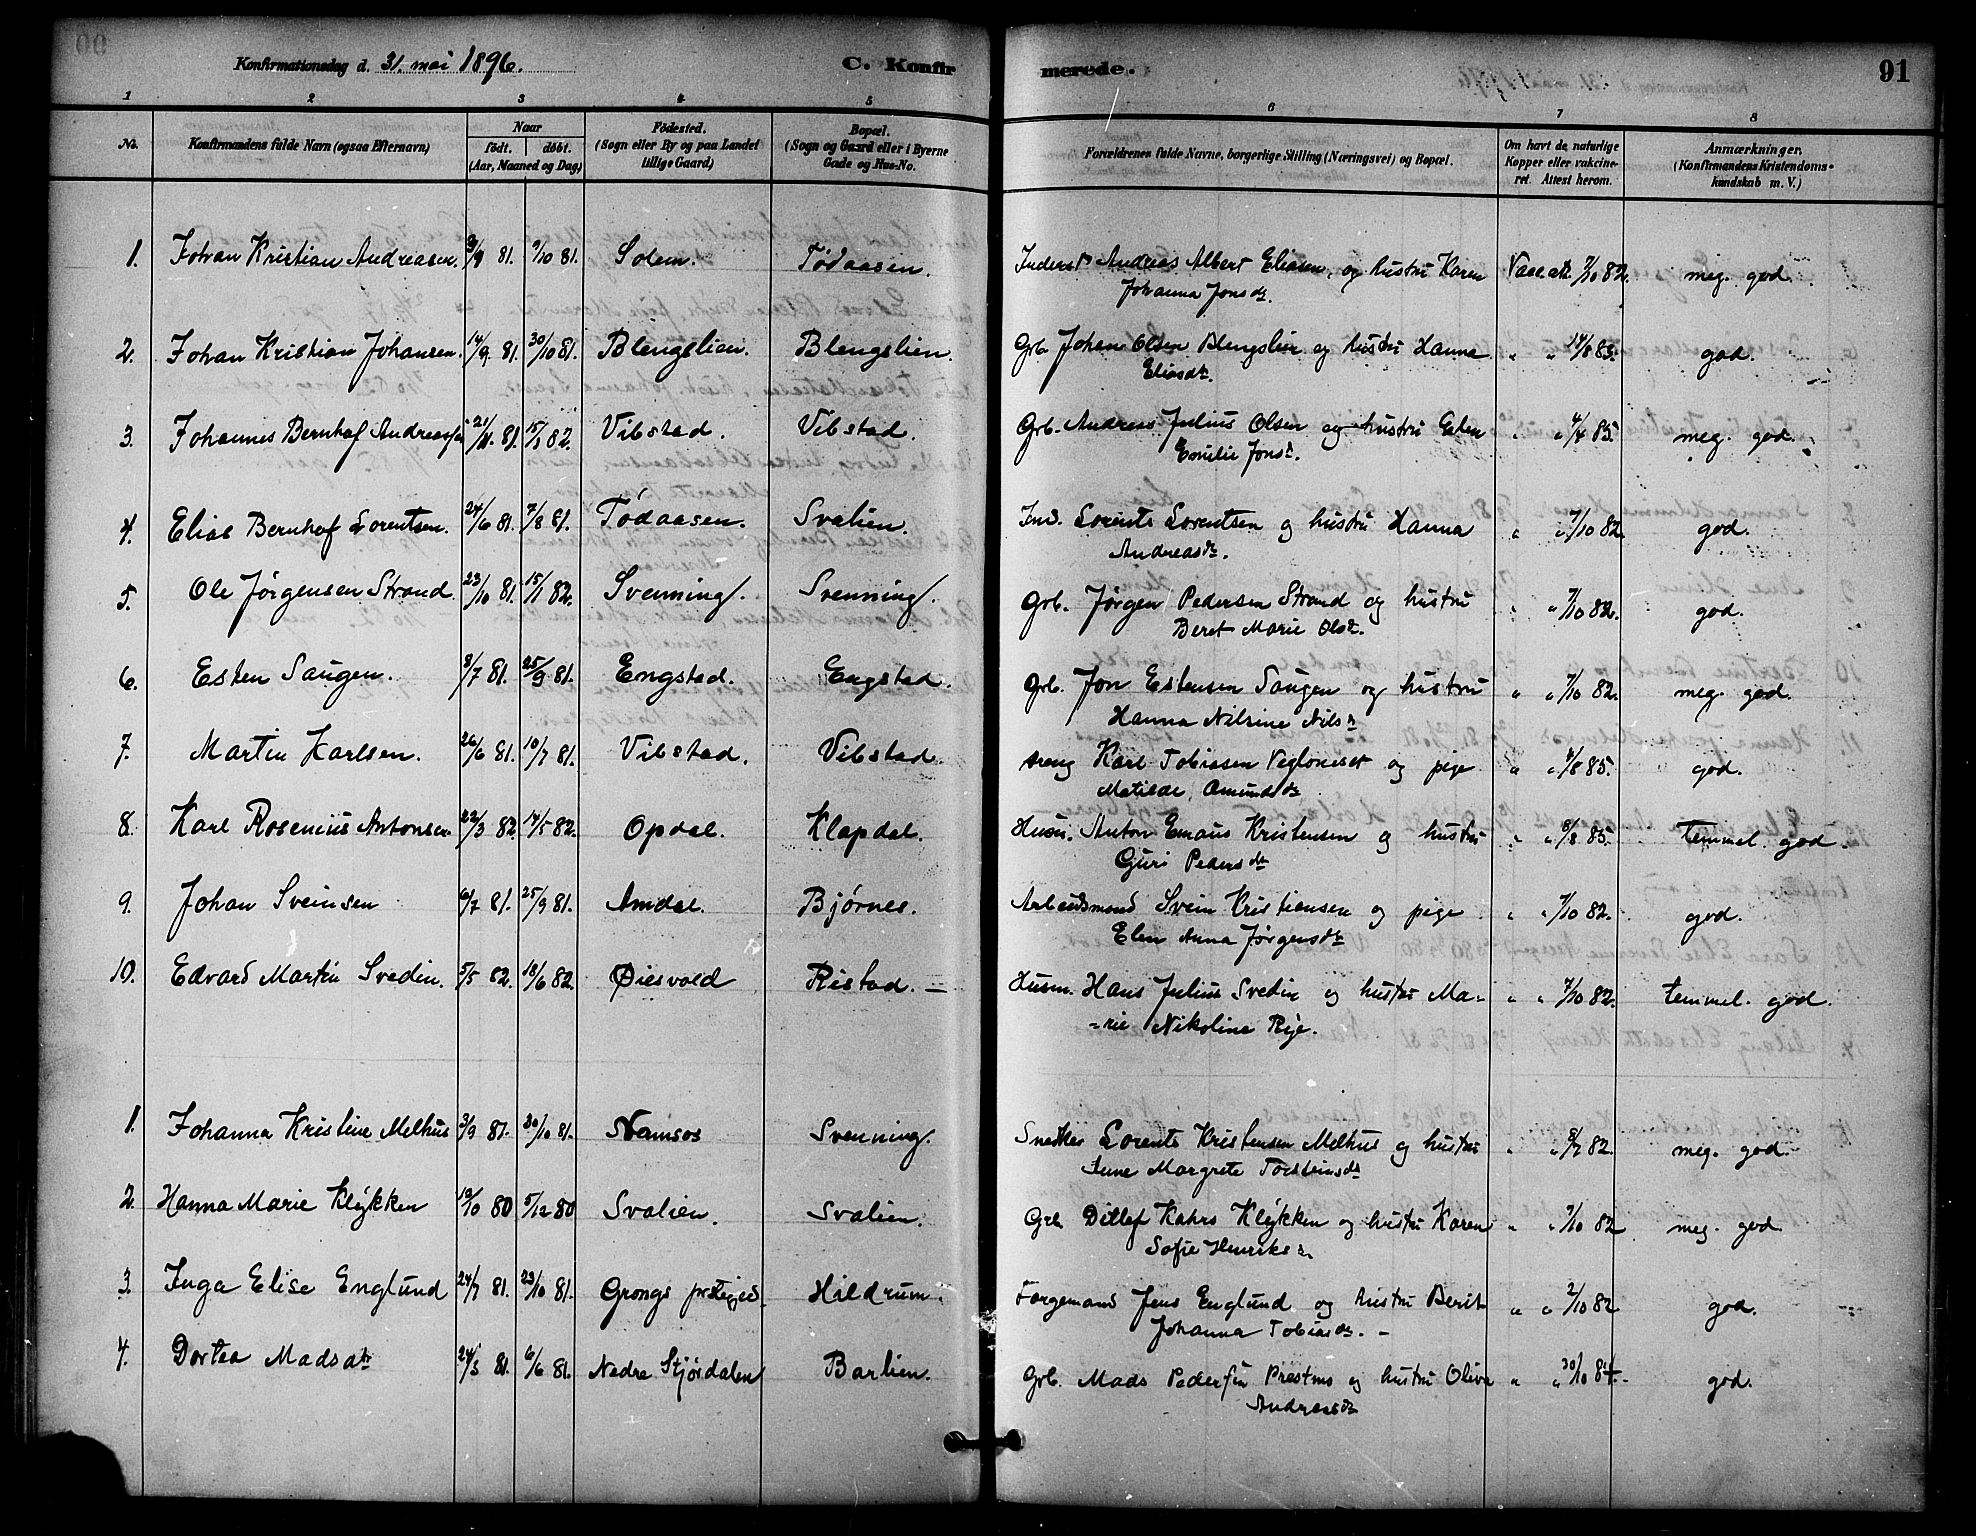 Konfirmationsdag d. 31. mai 1896. C. Konfirmerede. 91
1 2 3 4 5 6 7 8
No. Konfirmandens fulde Navn (ogsaa Efternavn) Naar født. døbt. (Aar, Maaned og Dag) Fødested. (Sogn eller By og paa Landet tillige Gaard) Bopæl. (Sogn og Gaard eller i Byerne Gade og Hus-No. Forældrenes fulde Navne, borgerlige Stilling (Næringsvei) og Bopæl. Om havt de naturlige Kopper eller vakcineret. Attest herom. Anmærkninger. (Konfirmandens Kristendomskundskab m. V.)
1. Johan Kristian Andreasen. /9 81. 9/10 81. Solem. Tødaasen. Inderst Andreas Albert Eliasen, og hustru Karen Vacc. att. 7/10 82. meg. god.
Johanna Jonsdr.
2. Johan Kristian Johansen. 14/9 81. 30/10 81. Blengslien. Blengslien. Grb. Johan Olsen Blengslien og hustru Hanna " " 14/8 83. god.
Eliasdr.
3. Johannes Bernhof Andreassen 21/11 81. 15/1 82. Vibstad. Vibstad. Grb. Andreas Julius Olsen og hustru Elen " " 4/4 85. meg. god.
Emilie Jonsdr.
4. Elias Bernhof Lorentsen. 24/6 81. 7/8 81. Tødaasen. Svalien. Ind. Lorents Lorentsen og hustru Hanna " " 7/10 82. god.
Andreasdr.
5. Ole Jørgensen Strand. 23/10 81. 15/1 82. Svenning. Svenning. Grb. Jørgen Pedersen Strand og hustru " " 7/10 82. god.
Beret Marie Olsdr.
6. Esten Saugen. 8/7 81. 25/9 81. Engstad. Engstad. Grb. Jon Estensen Saugen og hustru " " 7/10 82. meg. god.
Hanna Nilsine Nilsdr
7. Martin Karlsen. 26/6 81. 10/7 81. Vibstad. Vibstad. Karl Tobiasen og pige " " /8 85. god.
Matilde Amundsdr
8. Karl Rosenius Antonsen 22/3 82. 14/5 82. Opdal. Klapdal. Husm. Anton Emaus Kristensen og hustru " " 8/8 85. temmel. god.
Guri Pedersdr
9. Johan Sveinsen 6/7 81. 25/9 81. Amdal. Bjørnes. Arbeidsmand Svein Kristiansen og pige " " 7/10 82. god.
Elen Anna Jørgensdr
10. Edvard Martin Svedin. 5/5 82. 18/6 82. Øiesvold Ristad. — Husm. Hans Julius Svedin og hustru Ma- " " 7/10 82. temmel. god.
-rie Nikoline Rye.
1. Johanna Kristine Melhus 3/9 81. 30/10 81. Namsos Svenning. Snedker Lorents Kristensen Melhus og hustru " " 8/7 82. meg. god.
Margrete Torsteinsdr
2. Hanna Marie Klykken 19/10 80 5/12 80 Svalien. Svalien. Grb. Ditlef Kahrs Klykken og hustru Karen " " 7/10 82 meg. god
Sofie Henriksdr.
3. Inga Elise Englund 24/7 81. 23/10 81. Grongs prstgjed. Hildrum. Jens Englund og hustru Berit " " 2/10 82 god.
Johanna Tobiasdr. -
4. Dortea Madsdtr 24/3 81. 6/6 81. Nedre Stjørdalen Barlien. Grb. Mads Pedersen Prestmo og hustru Oliva " " 30/10 84. god.
Andreasdr